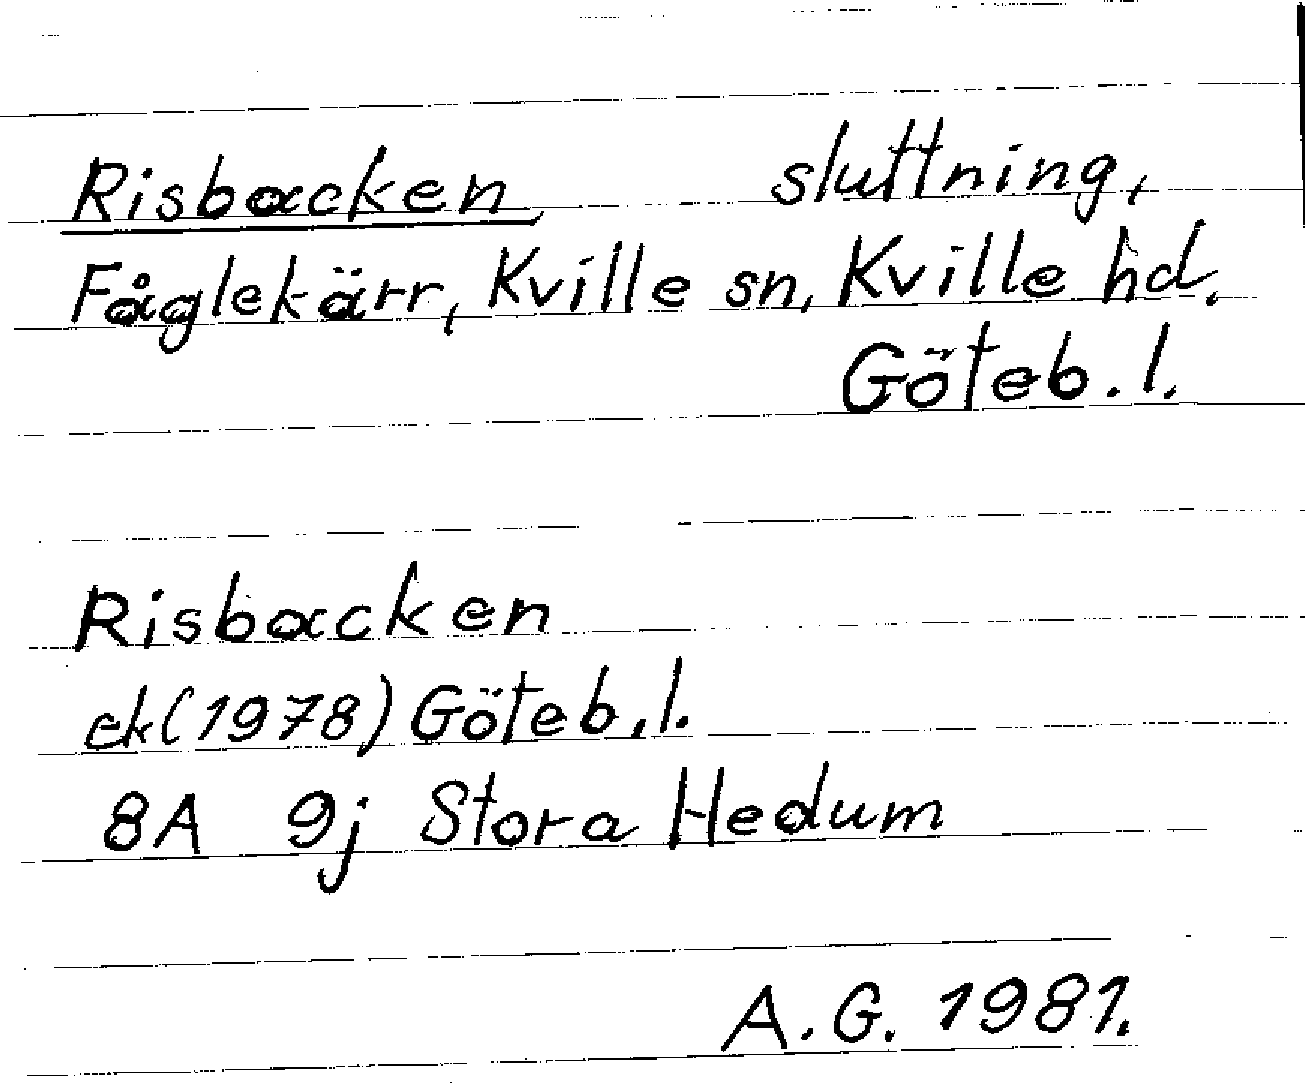 Risbacken, sluttning,
Fåglekärr, Kville sn, Kville hd.
Göteb. l.
Risbacken
ek (1978) Göteb. l.
8A 9j Stora Hedum
A.G. 1981.